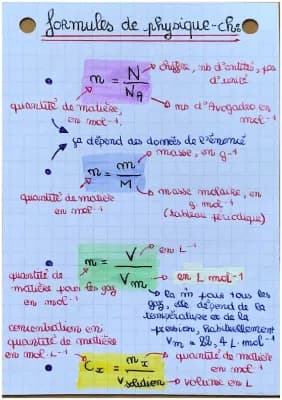 formules de physique-ch
n = N / NA
chiffre, nb d'entité, pas d'unité
quantité de matière, en mol⁻¹.
nb d'Avogadro en mol⁻¹
ça dépend des données de l'énoncé
n = m / M
masse, en g⁻¹
quantité de matière en mol⁻¹.
masse molaire, en g.mol⁻¹
(tableau périodique)
n = V / Vm
en L⁻¹
quantité de matière pour les gaz en mol⁻¹
en L mol⁻¹
la m̂ pour tous les gaz, elle dépend de la température et de la pression, habituellement
Vm = 22,4 L.mol⁻¹
concentration en quantité de matière en mol.L⁻¹
Cx = nx / Vsolution
quantité de matière en mol⁻¹
volume en L